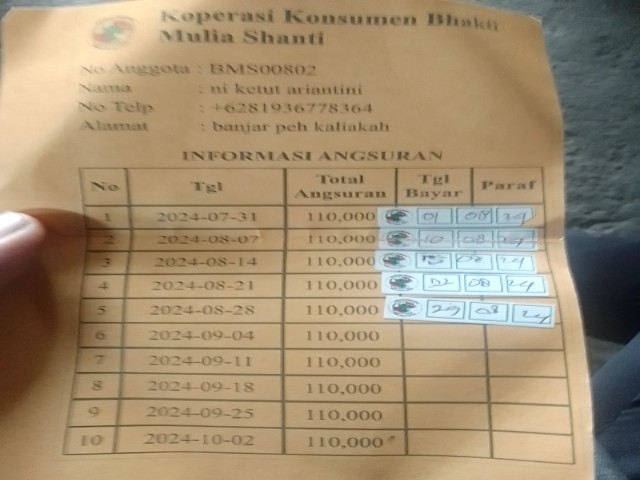 Koperasi Konsumen Bhakti
Mulia Shanti
No Anggota : BMS00802
Nama : ni ketut ariantini
No Telp : +6281936778364
Alamat : banjar peh kaliakah
INFORMASI ANGSURAN
No Tgl Total Angsuran Tgl Bayar Paraf
1 2024-07-31 110,000 01 08 24
2 2024-08-07 110,000 10 08 24
3 2024-08-14 110,000 15 08 24
4 2024-08-21 110,000 22 08 24
5 2024-08-28 110,000 29 08 24
6 2024-09-04 110,000
7 2024-09-11 110,000
8 2024-09-18 110,000
9 2024-09-25 110,000
10 2024-10-02 110,000